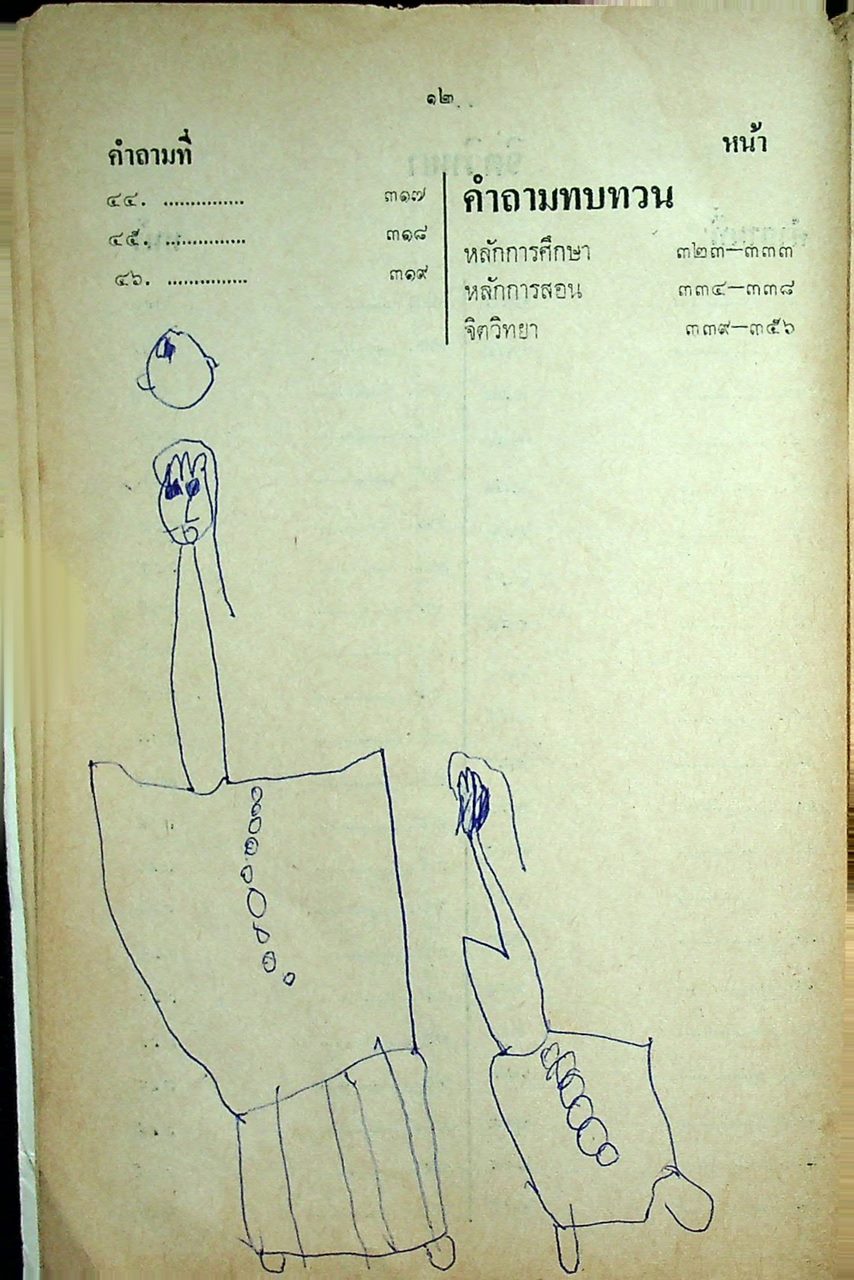 ๑๒
คำถามที่
หน้า
๔๔. ............... ๓๑๗
๔๕. ............... ๓๑๘
๔๖. ............... ๓๑๙
คำถามทบทวน
หลักการศึกษา ๓๒๓—๓๓๓
หลักการสอน ๓๓๔—๓๓๘
จิตวิทยา ๓๓๙—๓๕๖